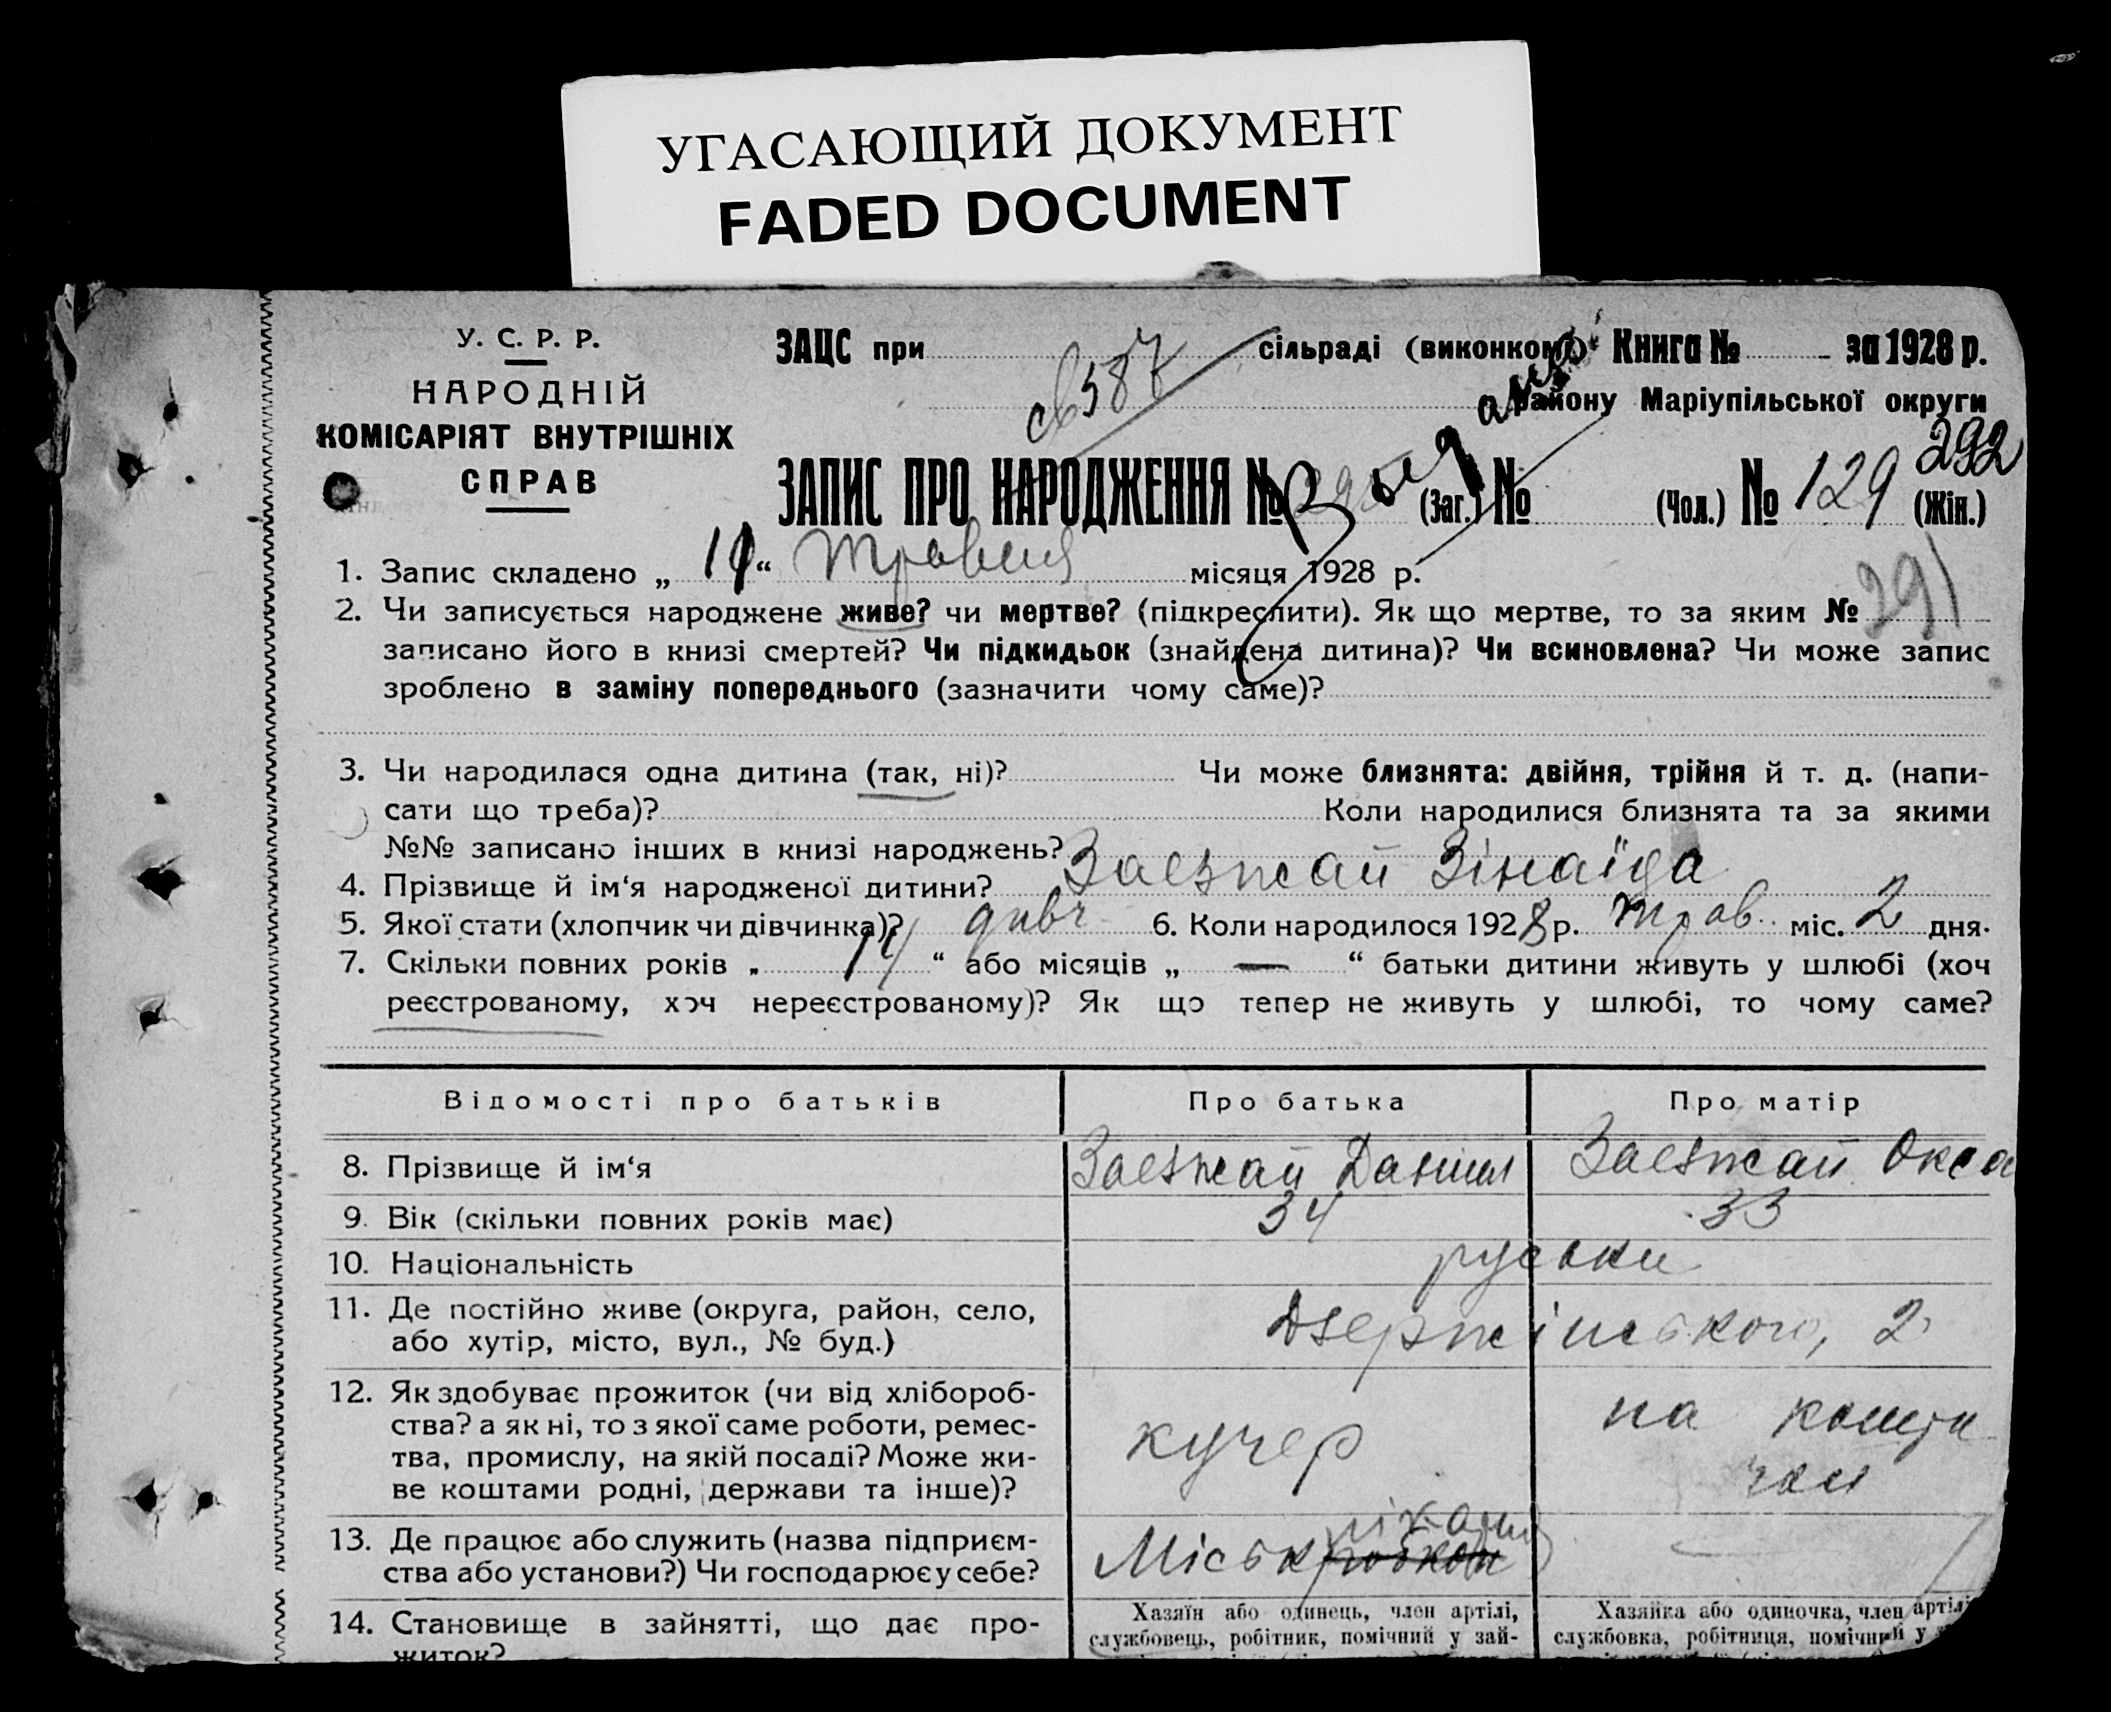 УГАСАЮЩИЙ ДОКУМЕНТ
FADED DOCUMENT
У. С. Р. Р.
НАРОДНІЙ
КОМІСАРІЯТ ВНУТРІШНІХ
СПРАВ
ЗАЦС при сільраді (виконкомі) Книга № за 1928 р.
св 587
району Маріупільської округи
292
ЗАПИС ПРО НАРОДЖЕННЯ № (Заг.) № (Чол.) № 129 (Жін.)
1. Запис складено „ “ травня місяця 1928 р.
291
2. Чи записується народжене живе? чи мертве? (підкреслити). Як що мертве, то за яким №
записано його в книзі смертей? Чи підкидьок (знайдена дитина)? Чи всиновлена? Чи може запис
зроблено в заміну попереднього (зазначити чому саме)?
3. Чи народилася одна дитина (так, ні)? Чи може близнята: двійня, трійня й т. д. (напи-
сати що треба)? Коли народилися близнята та за якими
№№ записано інших в книзі народжень?
4. Прізвище й ім‘я народженої дитини? Заезжай Зінаїда
5. Якої стати (хлопчик чи дівчинка)? дивч 6. Коли народилося 1928 р. трав міс. 2 дня.
7. Скільки повних років „ 14 “ або місяців „ — “ батьки дитини живуть у шлюбі (хоч
реєстрованому, хоч нереєстрованому)? Як що тепер не живуть у шлюбі, то чому саме?
Відомості про батьків Про батька Про матір
8. Прізвище й ім‘я Заезжай Данил Заезжай Окса
9. Вік (скільки повних років має) 34 33
10. Національність руськи
11. Де постійно живе (округа, район, село,
або хутір, місто, вул., № буд.) Дзержінського, 2
12. Як здобуває прожиток (чи від хлібороб-
ства? а як ні, то з якої саме роботи, ремес-
тва, промислу, на якій посаді? Може жи-
ве коштами родні, держави та інше)?
кучер
на кошти
чол
13. Де працює або служить (назва підприєм-
ства або установи?) Чи господарює у себе?
Міськ
14. Становище в зайнятті, що дає про-
житок?
Хазяїн або одинець, член артілі,
службовець, робітник, помічний у зай-
Хазяйка або одиночка, член артілі
службовка, робітниця, помічний у